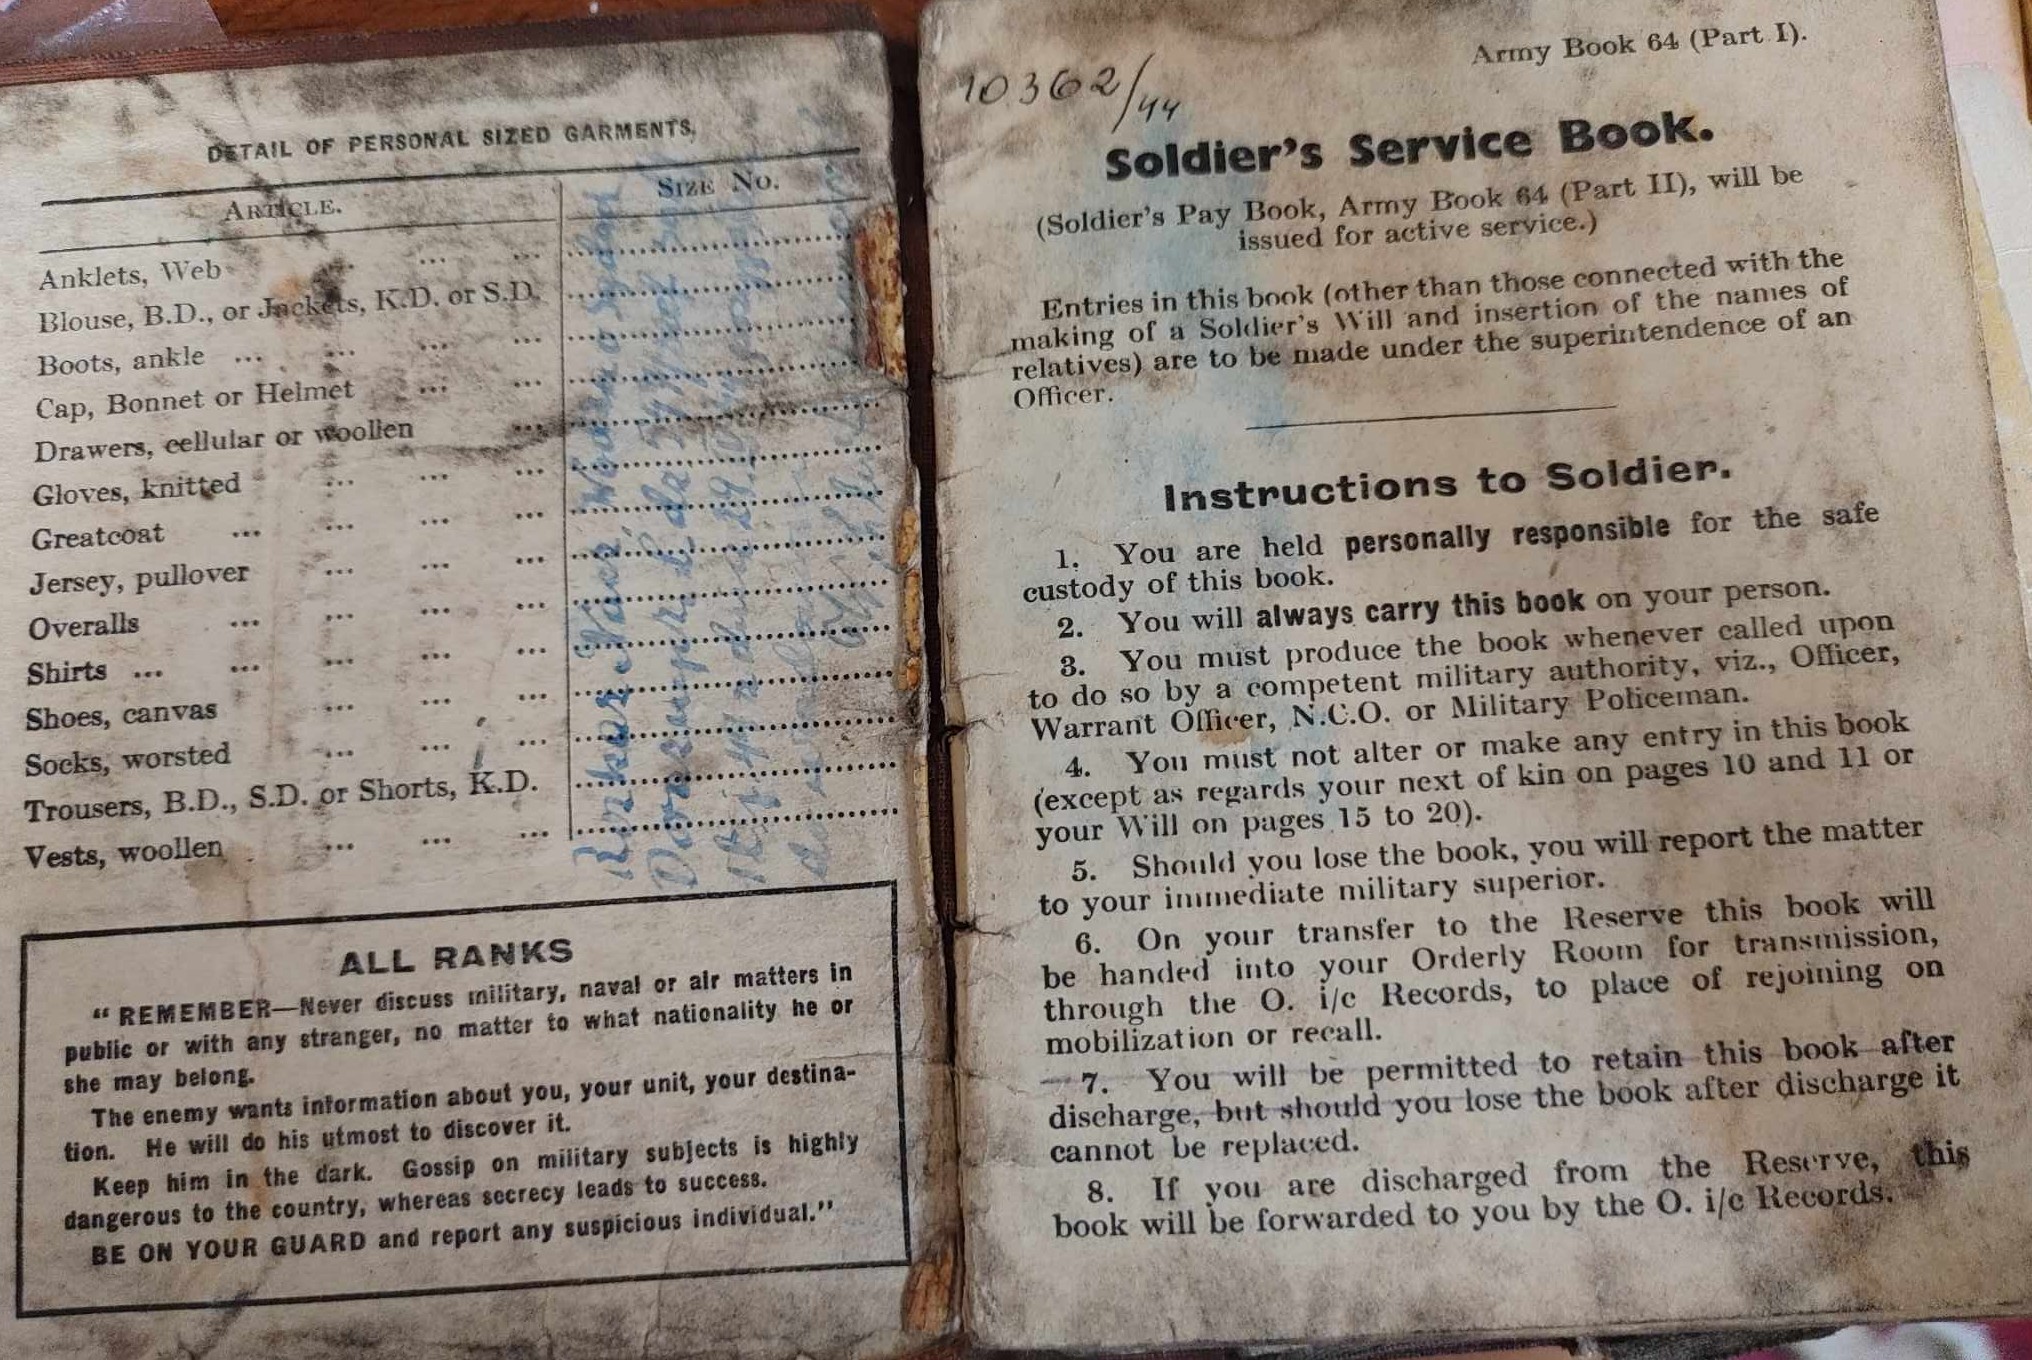 DETAIL OF PERSONAL SIZED GARMENTS.
ARTICLE. SIZE NO.
Anklets, Web ... ... ...
Blouse, B.D., or Jackets, K.D. or S.D.
Boots, ankle ... ... ... ...
Cap, Bonnet or Helmet ... ...
Drawers, cellular or woollen ...
Gloves, knitted ... ... ...
Greatcoat ... ... ... ...
Jersey, pullover ... ... ...
Overalls ... ... ... ...
Shirts ... ... ... ... ...
Shoes, canvas ... ... ...
Socks, worsted ... ... ...
Trousers, B.D., S.D. or Shorts, K.D.
Vests, woollen ... ... ...
ALL RANKS
“REMEMBER—Never discuss military, naval or air matters in
public or with any stranger, no matter to what nationality he or
she may belong.
The enemy wants information about you, your unit, your destina-
tion. He will do his utmost to discover it.
Keep him in the dark. Gossip on military subjects is highly
dangerous to the country, whereas secrecy leads to success.
BE ON YOUR GUARD and report any suspicious individual.”
10362/44
Army Book 64 (Part I).
Soldier's Service Book.
(Soldier's Pay Book, Army Book 64 (Part II), will be
issued for active service.)
Entries in this book (other than those connected with the
making of a Soldier's Will and insertion of the names of
relatives) are to be made under the superintendence of an
Officer.
Instructions to Soldier.
1. You are held personally responsible for the safe
custody of this book.
2. You will always carry this book on your person.
3. You must produce the book whenever called upon
to do so by a competent military authority, viz., Officer,
Warrant Officer, N.C.O. or Military Policeman.
4. You must not alter or make any entry in this book
(except as regards your next of kin on pages 10 and 11 or
your Will on pages 15 to 20).
5. Should you lose the book, you will report the matter
to your immediate military superior.
6. On your transfer to the Reserve this book will
be handed into your Orderly Room for transmission,
through the O. i/c Records, to place of rejoining on
mobilization or recall.
7. You will be permitted to retain this book after
discharge, but should you lose the book after discharge it
cannot be replaced.
8. If you are discharged from the Reserve, this
book will be forwarded to you by the O. i/c Records.